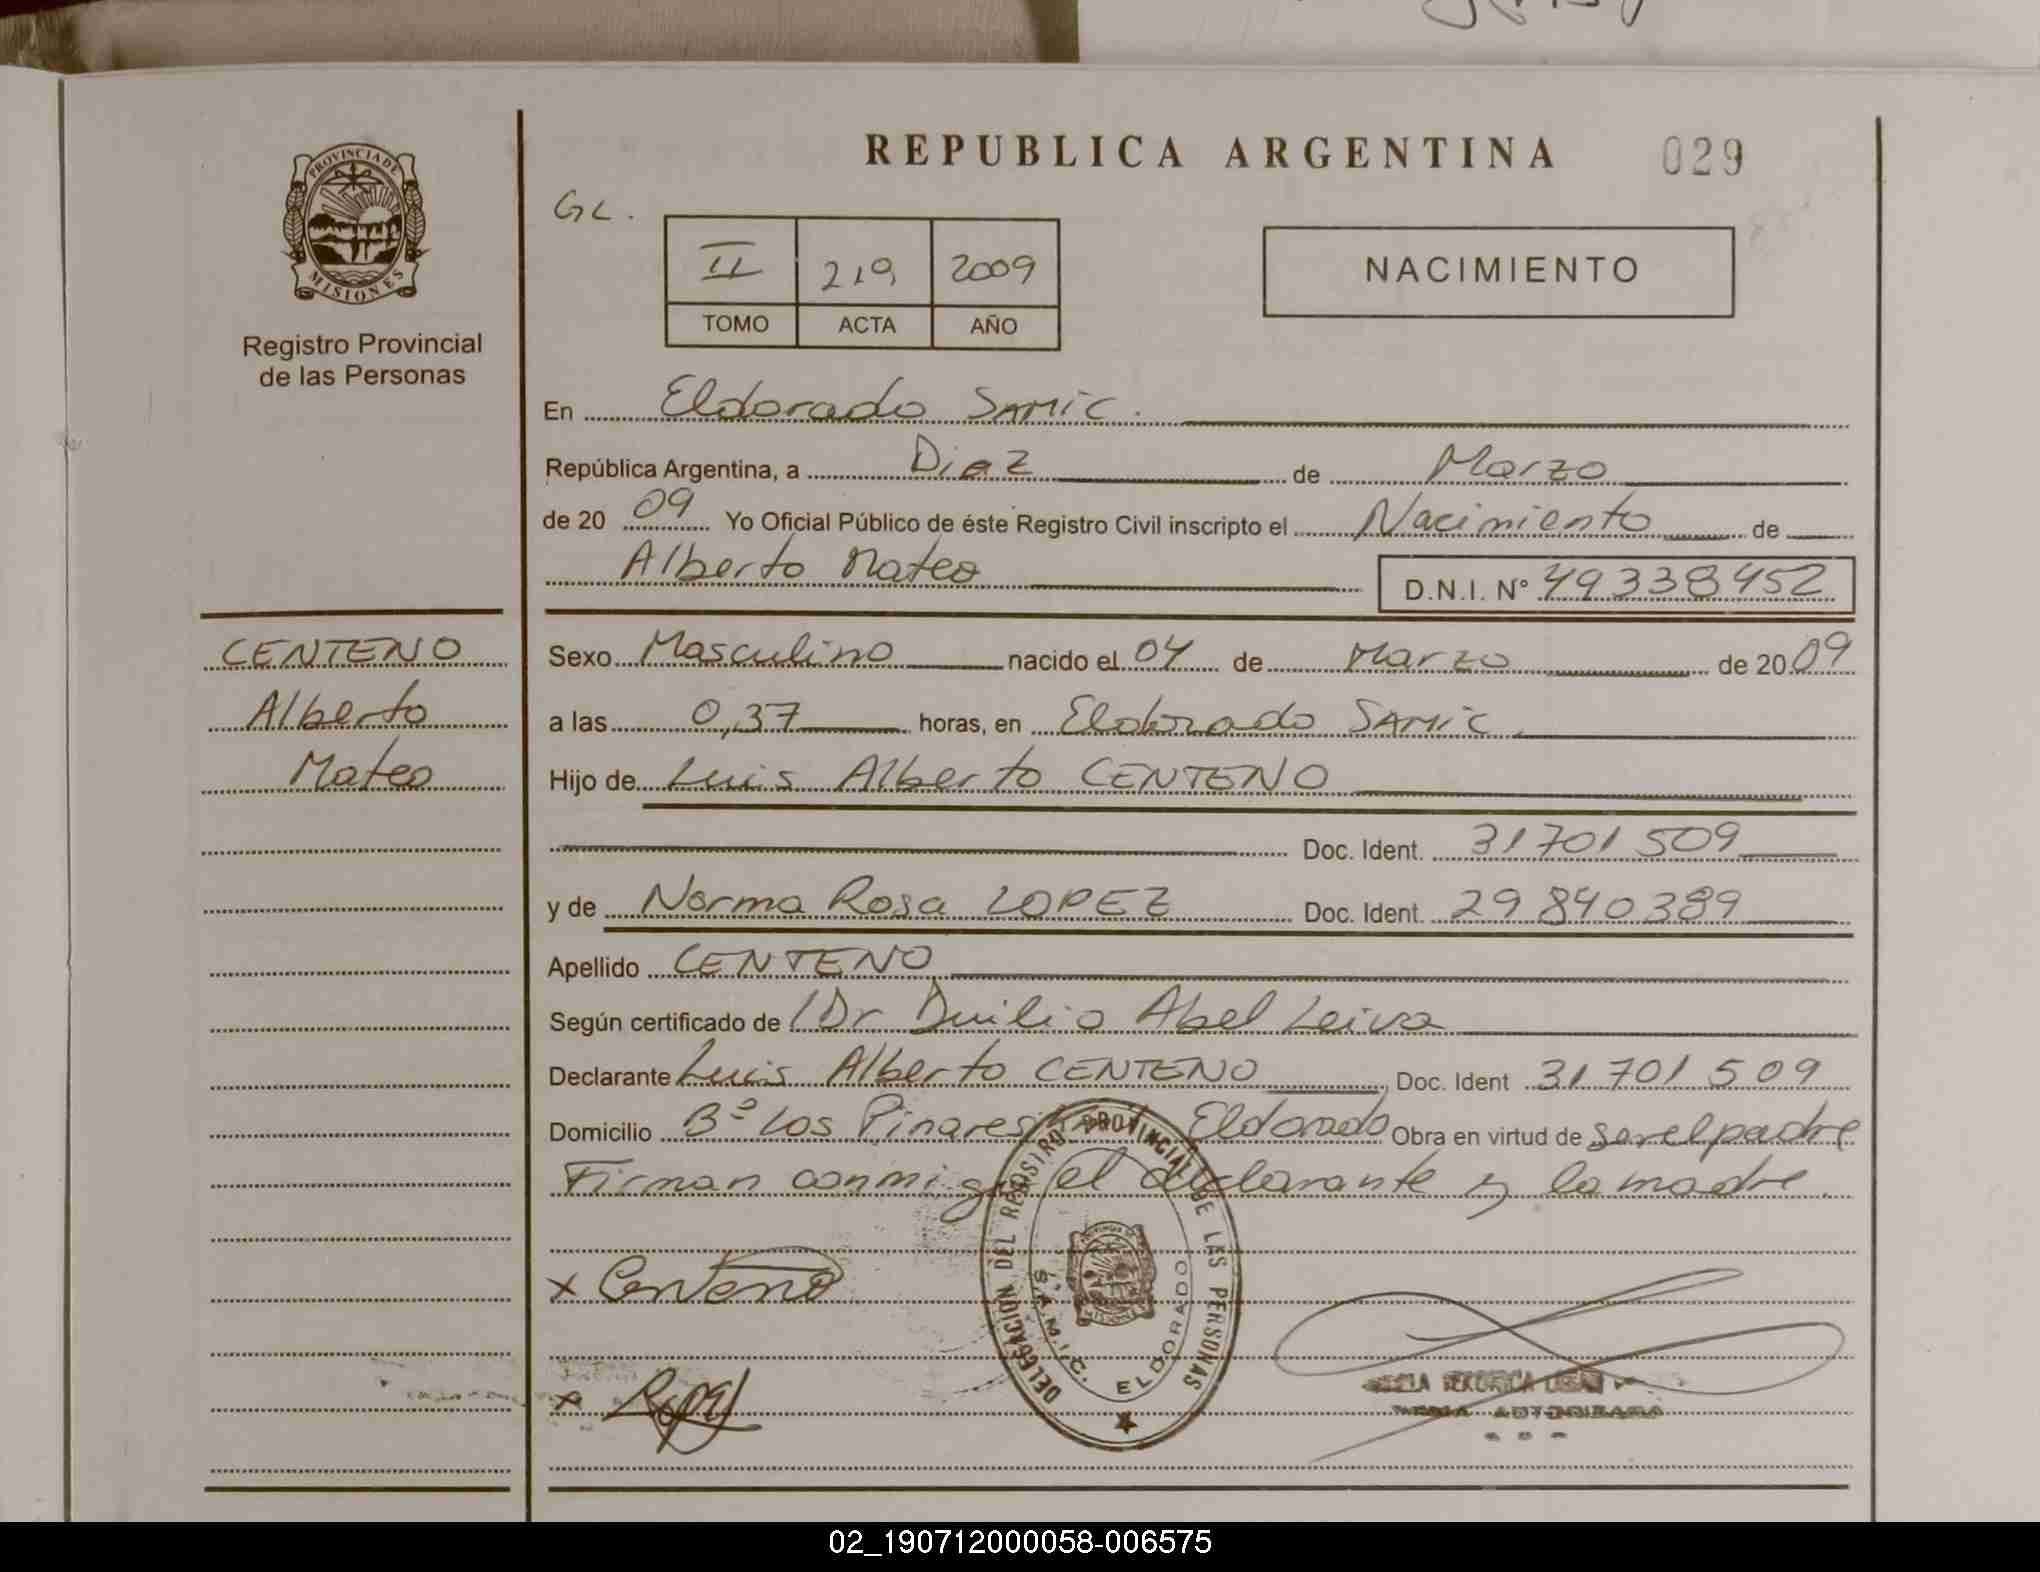 REPUBLICA ARGENTINA
029
PROVINCIA DE
MISIONES
Registro Provincial
de las Personas
GL.
II 219 2009
TOMO ACTA AÑO
NACIMIENTO
En Eldorado SAMIC.
República Argentina, a Diez de Marzo
de 20 09 Yo Oficial Público de éste Registro Civil inscripto el Nacimiento de
Alberto Mateo D.N.I. Nº 49338452
CENTENO
Alberto
Mateo
Sexo Masculino nacido el 04 de Marzo de 20 09
a las 0,37 horas, en Eldorado SAMIC.
Hijo de Luis Alberto CENTENO
Doc. Ident. 31 701 509
y de Norma Rosa LOPEZ Doc. Ident. 29 840 389
Apellido CENTENO
Según certificado de Dr Duilio Abel Leiva
Declarante Luis Alberto CENTENO, Doc. Ident 31 701 509
Domicilio Bº Los Pinares Eldorado Obra en virtud de ser el padre
Firman conmigo el declarante y la madre.
x Centeno
x
DELEGACION DEL REGISTRO PROVINCIAL DE LAS PERSONAS
S.A.M.I.C. ELDORADO
02_190712000058-006575